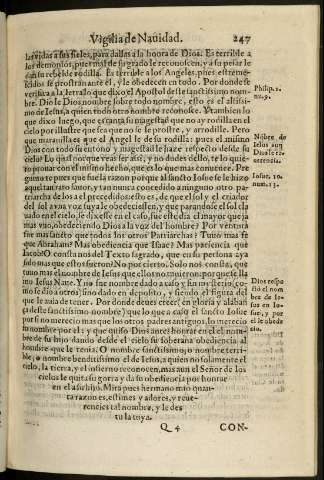 Vigilia de Nauidad. 247
las vidas a sus fieles, para dallas a la honra de Dios. Es terrible a
los demonios, pues mal de su grado le reconocen, y a su pesar le
dan su rebelde rodilla. Es terrible a los Angeles, pues estreme-
cidos se prostran ante el, y le obedecen en todo. Por donde se
verifica a la letra lo que dixo el Apostol deste sanctissimo nom-
bre. Dio le Dios nombre sobre todo nombre, esto es el altissi-
mo de Iesus, a quien todo otro nombre reconosce. Y tambien lo
que dixo luego, que es tanta su magestad que no ay rodilla en el
cielo por illustre que sea que no se le prostre, y arrodille. Pero
que marauilla es que el Angel le de su rodilla: pues el mismo
Dios con todo su entono y magestad le haze respecto desde su
cielo? Lo qual porque veas ser assi, y no dudes dello, te lo quie-
ro prouar con el mismo hecho, que es lo que mas conuence. Pre
gunto te pues que fue la razon porque al sancto Iosue se le hizo
aquel tan raro fauor, y tan nunca concedido a ninguno otro pa-
triarcha de los a el precedidos: esto es, de que el sol y el criador
del al vna voz suya le obedeciessen, y que parandose el sol cla
uado en el cielo, se dixesse en el caso, fue este dia el mayor que ja
mas vuo, obedeciendo Dios a la voz del hombre? Por ventura
fue mas sancto que todos los otros Patriarchas? Tuuo mas fe
que Abraham? Mas obediencia que Isaac? Mas paciencia que
Iacob? O consta nos del Texto sagrado, que en su persona aya
sido mas que estos fuertes? No por cierto. Solo nos consta, que
tuuo mas el nombre de Iesus que ellos no tuuieron: por que se lla
mo Iesus Naue. Y no fue nombre dado a vazio y sin mysterio, co-
mo se dio a otros, sino dado en deposito, y siendo el figura del
que le auia de tener. Por donde deues creer, en gloria y alaban
ça deste sanctissimo nombre, que lo que a caso el sancto Iosue
por si no merecio mas que los otros padres antiguos, lo merecio
su nombre por el: y que quiso Dios antes honrar en el el nom-
bre de su hijo dando desde el cielo su soberana obediencia al
nombre que le tenia. O nombre sanctissimo, o nombre terri-
ble, o nombre benditissimo el de Iesus, a quien no solamente el
cielo, la tierra, y el infierno reconocen, mas aun el Señor de los
cielos le quita su gorra y da su obediencia por honrar
en el a su hijo. Mira pues hermano mio quan-
ta razon es, estimes y adores, y reue-
rencies tal nombre, y le des
tu la tuya.
Philip. 2.
nu. 9.
Nõbre de
Iesus aun
Iosue. 10.
num. 13.
Dios respe
to el nom
bre de Ie-
sus en Io-
sue, y por
el le obede
cio.
Q 4 CON-